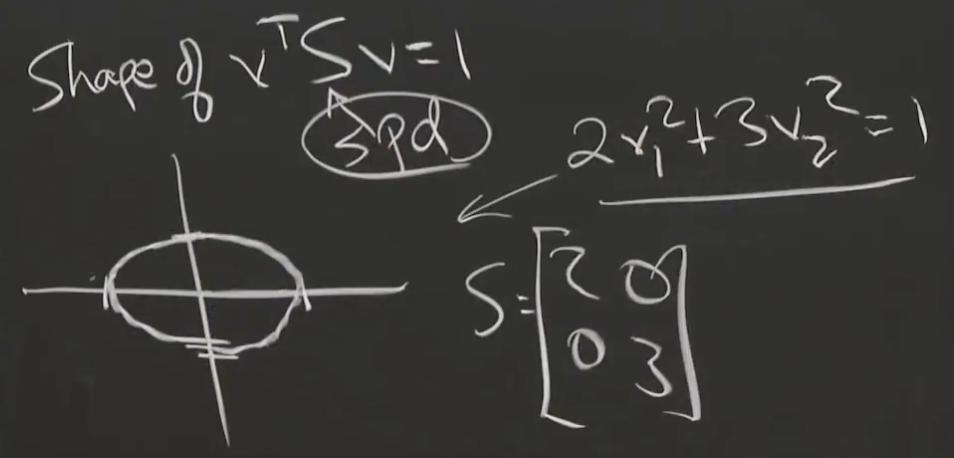 Shape of vᵀSv=1
spd
2v₁²+3v₂²=1
S=[2 0
0 3]